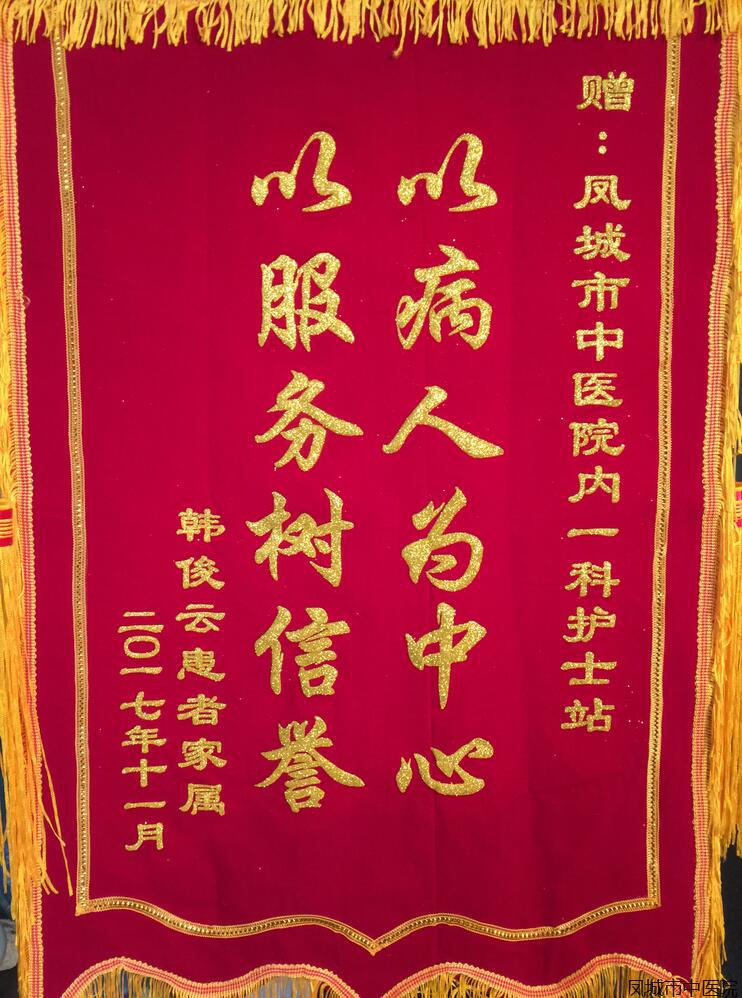 赠：凤城市中医院内一科护士站
以病人为中心
以服务树信誉
韩俊云患者家属
二〇一七年十一月
凤城市中医院